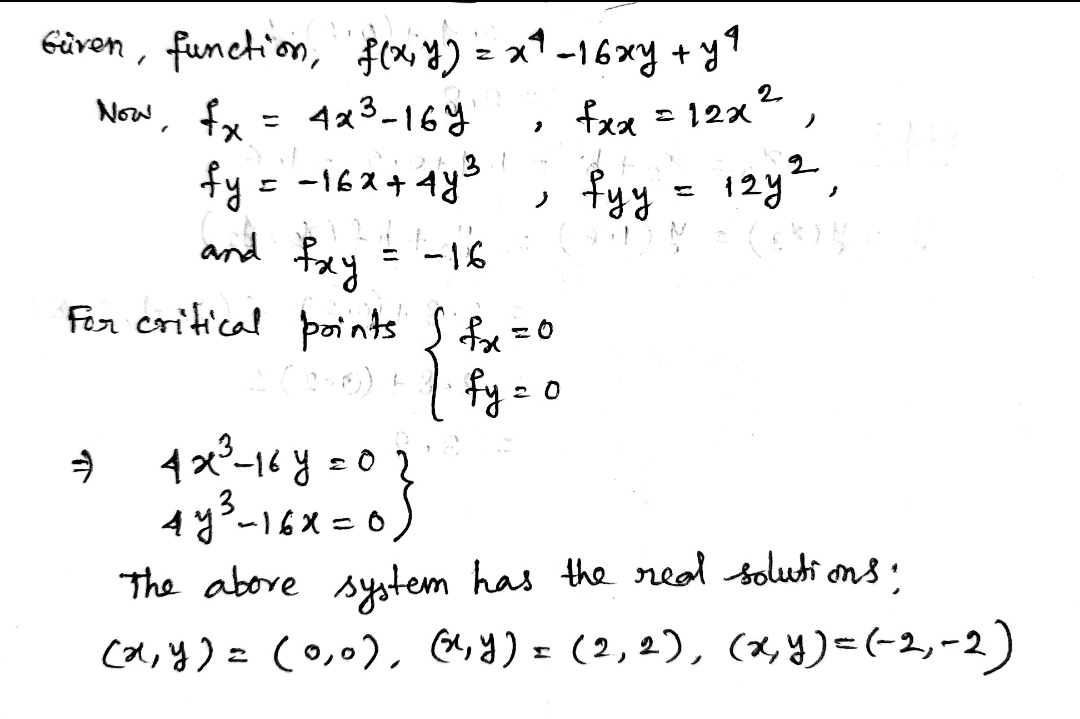 Given, function, f(x,y) = x⁴ -16xy + y⁴
Now, fₓ = 4x³-16y , fxx = 12x² ,
fy = -16x + 4y³ , fyy = 12y² ,
and fxy = -16
For critical points { fx = 0
fy = 0
⇒ 4x³-16y = 0 }
4y³-16x = 0
The above system has the real solutions;
(x,y) = (0,0), (x,y) = (2,2), (x,y)=(-2,-2)